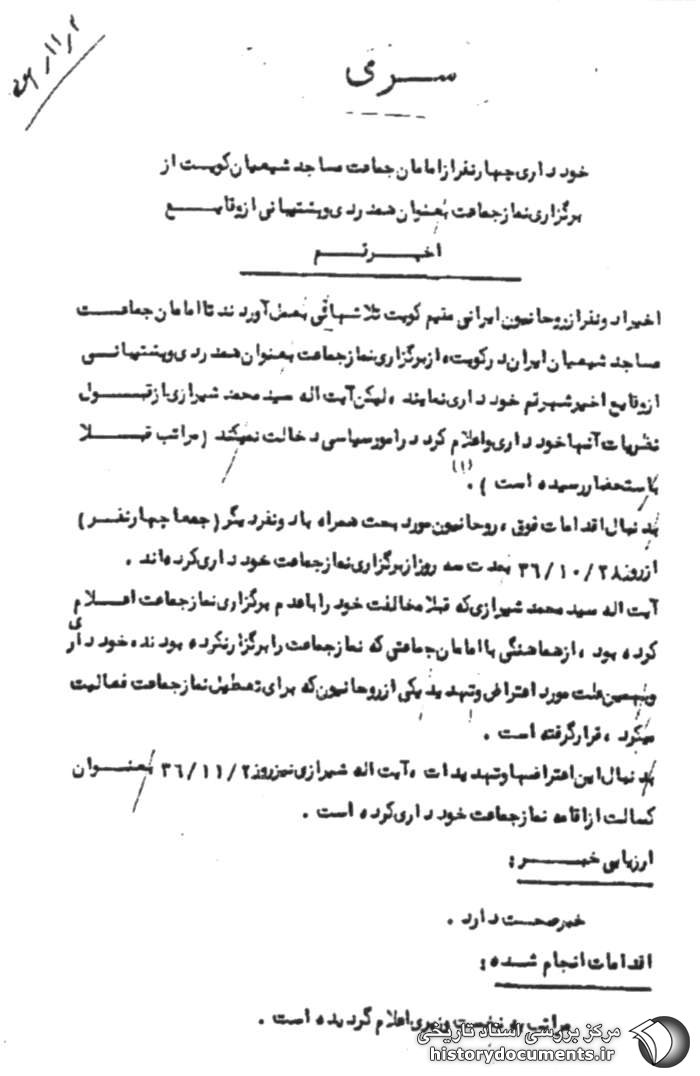 سری
خودداری چهارنفر از امامان جماعت مساجد شیعیان کویت از
برگزاری نماز جماعت بعنوان همدردی و پشتیبانی از وقایع
اخیر قم
اخیرا دو نفر از روحانیون ایرانی مقیم کویت تلاشهائی بعمل آوردند تا امامان جماعت
مساجد شیعیان ایران در کویت، از برگزاری نماز جماعت بعنوان همدردی و پشتیبانی
از وقایع اخیر شهر قم خودداری نمایند، لیکن آیت اله سید محمد شیرازی از قبول
نظریات آنها خودداری و اعلام کرد در امور سیاسی دخالت نمیکند (مراتب قبلا
باستحضار رسیده است). (۱)
بدنبال اقدامات فوق، روحانیون مورد بحث همراه با دو نفر دیگر (جمعا چهار نفر)
از روز ۳۶/۱۰/۲۸ بمدت سه روز از برگزاری نماز جماعت خودداری کرده اند.
آیت اله سید محمد شیرازی که قبلا مخالفت خود را با عدم برگزاری نماز جماعت اعلام
کرده بود، از هماهنگی با امامان جماعتی که نماز جماعت را برگزار نکرده بودند، خودداری
و بهمین علت مورد اعتراض و تهدید یکی از روحانیون که برای تعطیل نماز جماعت فعالیت
میکرد، قرار گرفته است.
بدنبال این اعتراضها و تهدیدات، آیت اله شیرازی نیز روز ۳۶/۱۱/۲ بعنوان
کسالت از اقامه نماز جماعت خودداری کرده است.
ارزیابی خبر:
خبر صحت دارد.
اقدامات انجام شده:
مراتب به نخست وزیری اعلام گردیده است.
مرکز بررسی اسناد تاریخی
historydocuments.ir